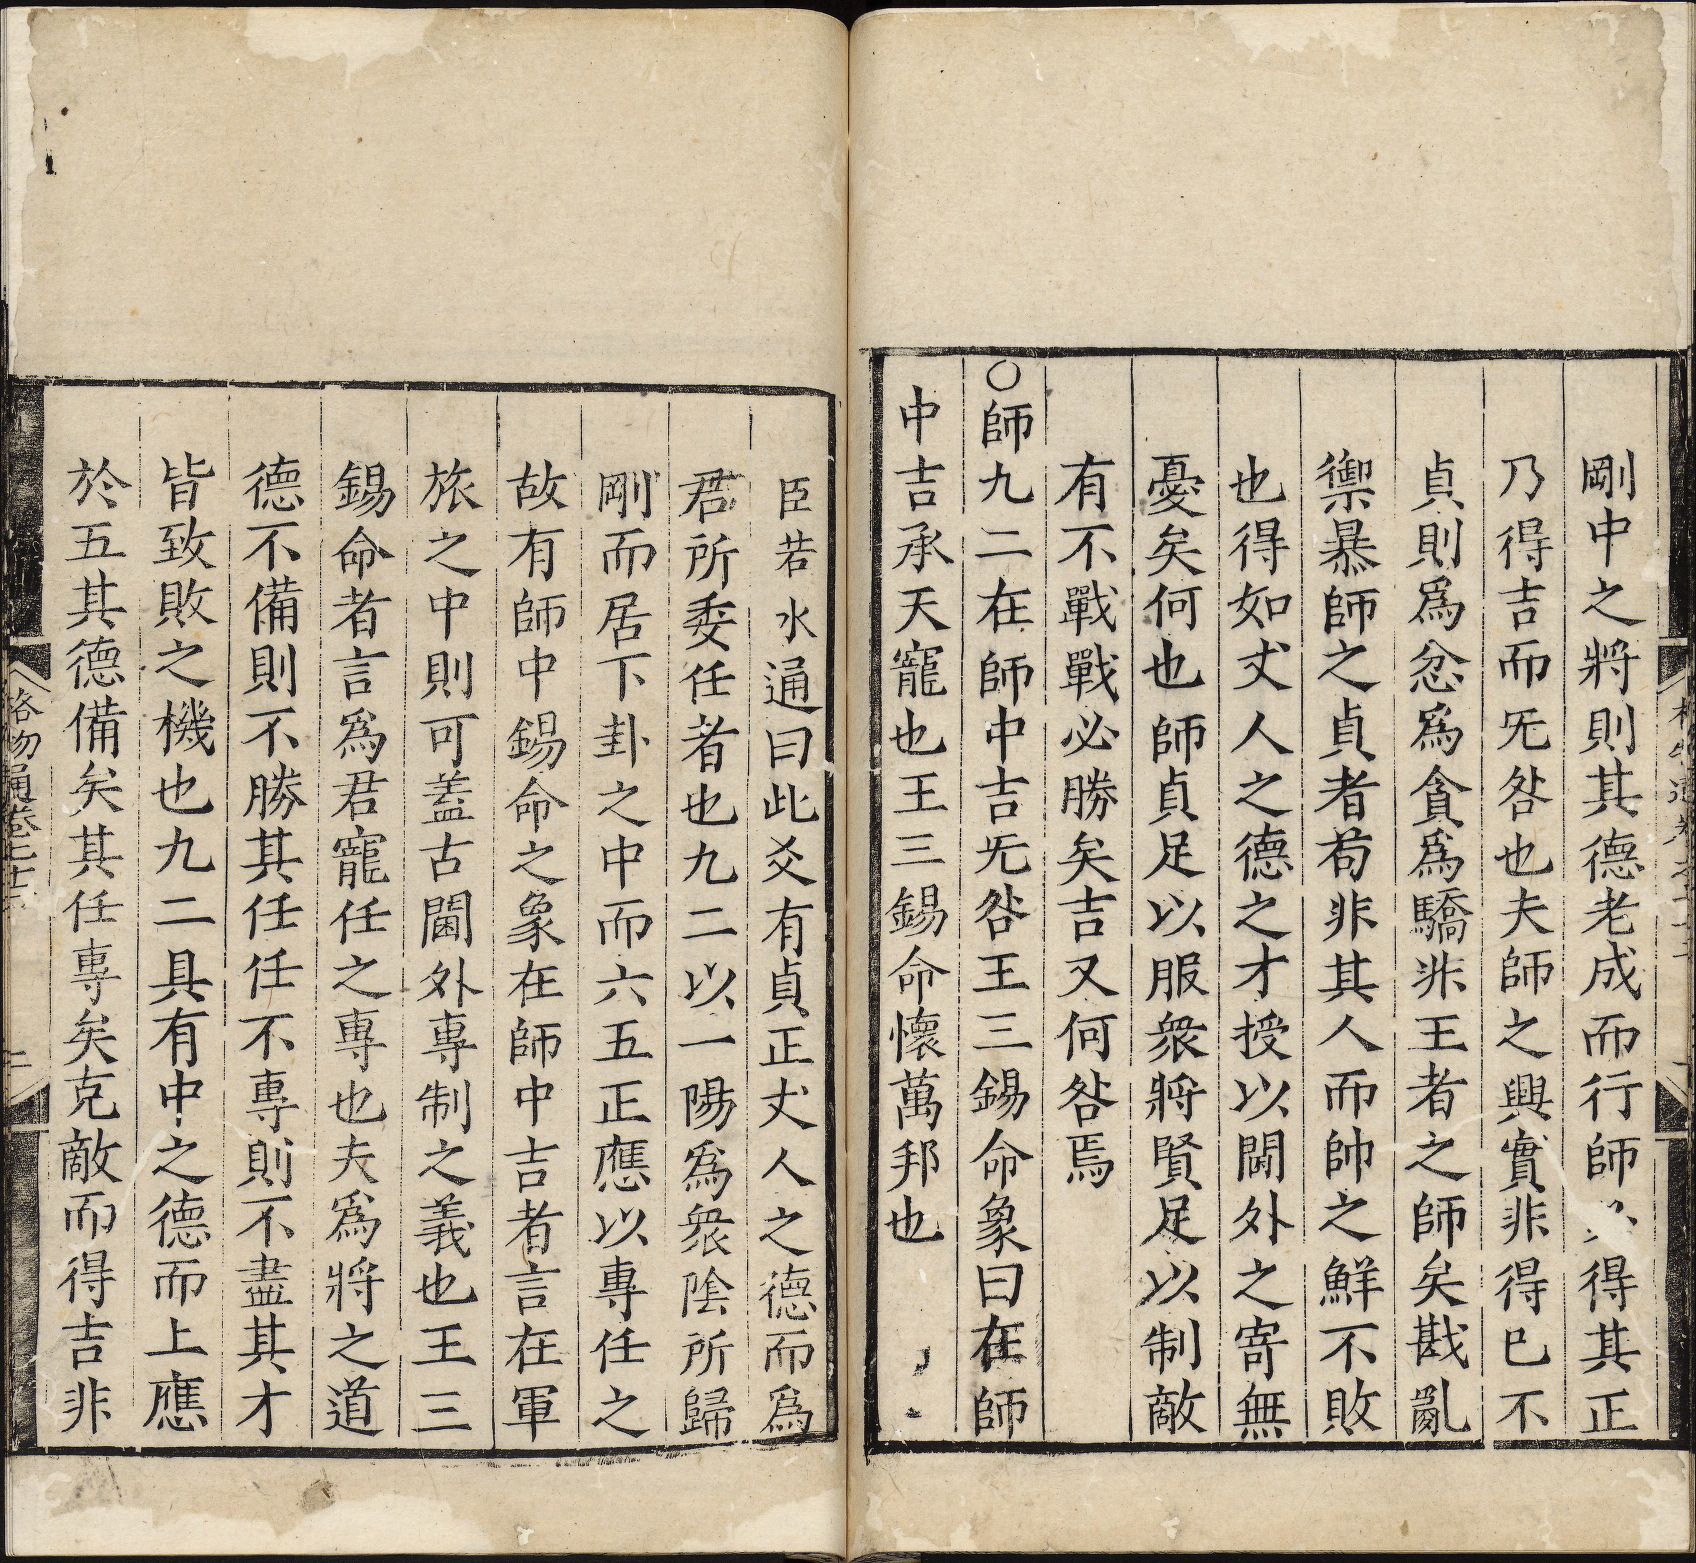 剛中之將則其德老成而行師得其正
乃得吉而旡咎也夫師之興實非得已不
貞則爲忿爲貪爲驕非王者之師矣戡亂
禦暴師之貞者苟非其人而帥之鮮不敗
也得如丈人之德之才授以閫外之寄無
憂矣何也師貞足以服衆將賢足以制敵
有不戰戰必勝矣吉又何咎焉
○師九二在師中吉旡咎王三錫命象曰在師
中吉承天寵也王三錫命懷萬邦也
臣若水通曰此爻有貞正丈人之德而爲
君所委任者也九二以一陽爲衆陰所歸
剛而居下卦之中而六五正應以專任之
故有師中錫命之象在師中吉者言在軍
旅之中則可蓋古閫外專制之義也王三
錫命者言爲君寵任之專也夫爲將之道
德不備則不勝其任任不專則不盡其才
皆致敗之機也九二具有中之德而上應
於五其德備矣其任專矣克敵而得吉非
格物通卷之七十二
二